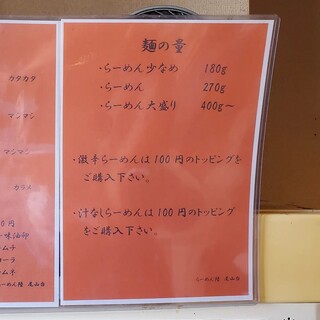 カタカタ
マシマシ
マシマシ
カラメ
麺の量
・らーめん少なめ 180g
・らーめん 270g
・らーめん大盛り 400g～
・激辛らーめんは100円のトッピングを
ご購入下さい。
・汁なしらーめんは100円のトッピング
をご購入下さい。
らーめん陸 尾山台